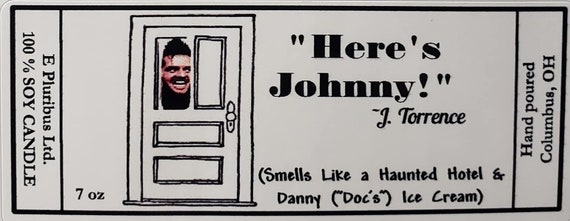 E Pluribus Ltd.
100 % SOY CANDLE
7 oz
"Here's
Johnny!"
~J. Torrence
(Smells Like a Haunted Hotel &
Danny ("Doc's") Ice Cream)
Hand poured
Columbus, OH